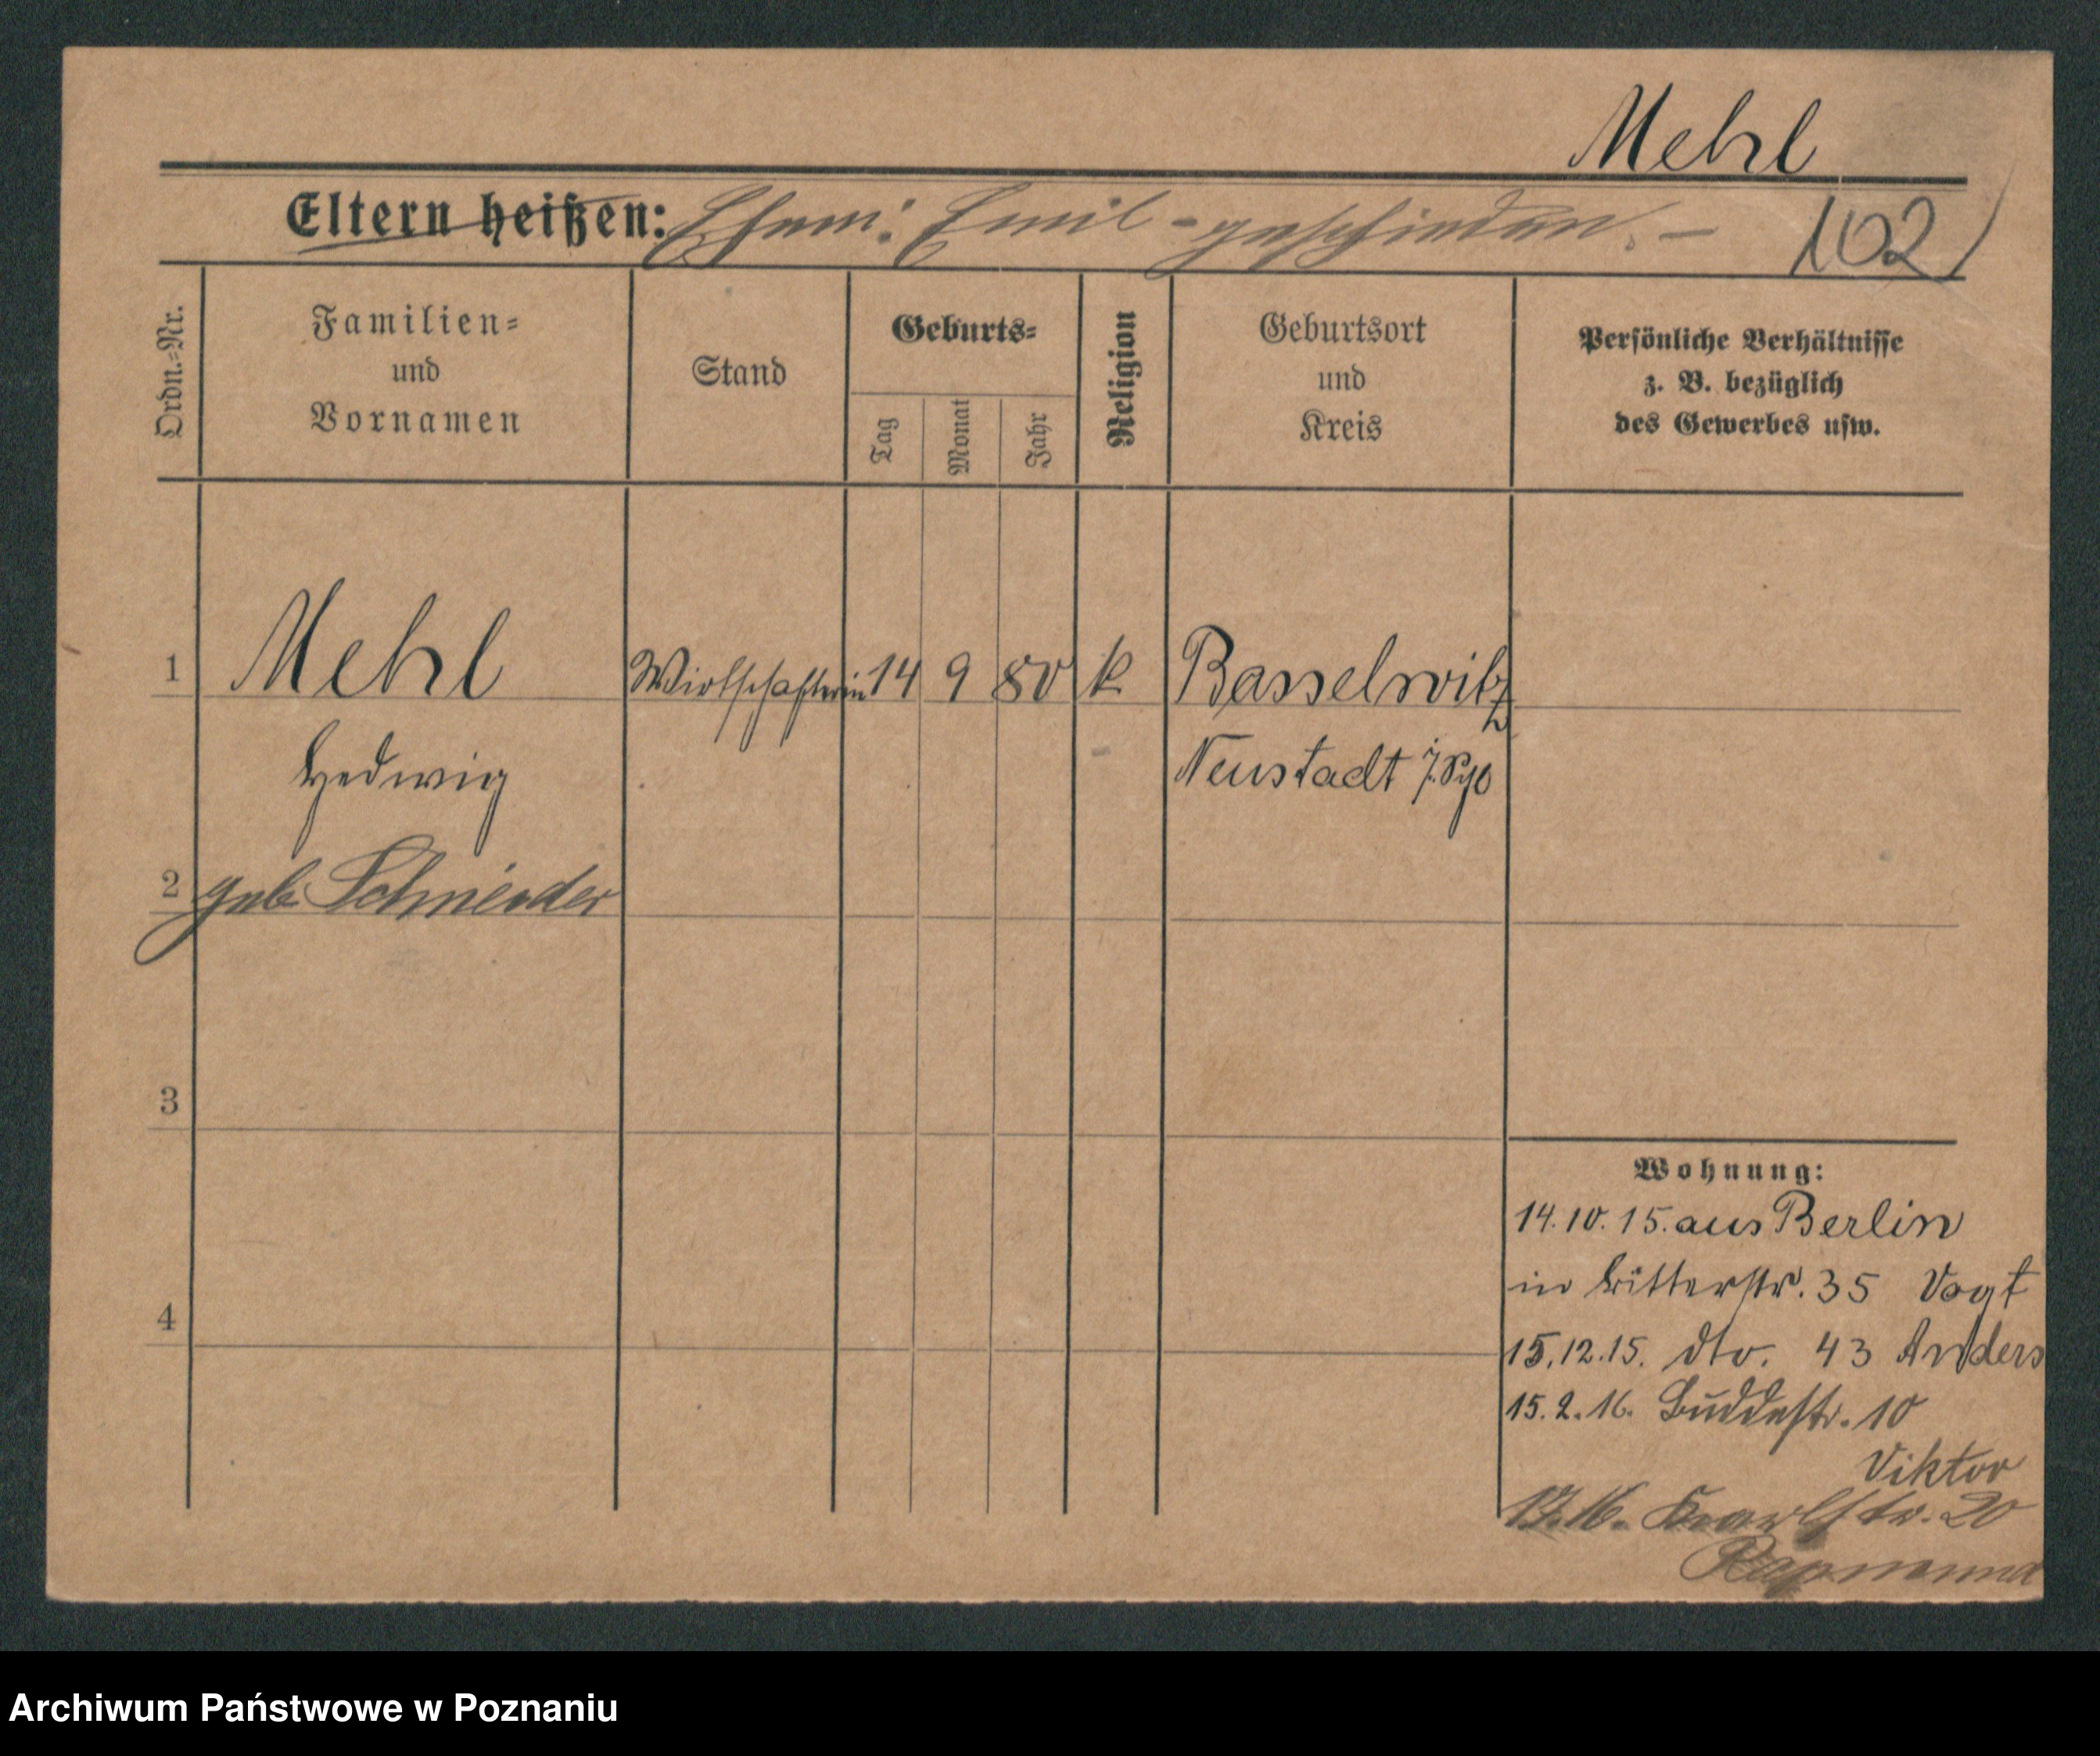 Mehl
Eltern heißen: Ehem: Emil - geschieden. -
102
Ordn.=Nr.
Familien=
und
Vornamen
Stand
Geburts=
Tag
Monat
Jahr
Religion
Geburtsort
und
Kreis
Persönliche Verhältnisse
z. B. bezüglich
des Gewerbes usw.
1 Mehl Wirtschafterin 14 9 80 k Basselwitz
Hedwig Neustadt
2 geb. Schneider
3
4
Wohnung:
14.10.15. aus Berlin
in Ritterstr. 35 Vogt
15.12.15. dto. 43 Anders
15.2.16. Buddestr. 10
Viktor
Karlstr. 20
Archiwum Państwowe w Poznaniu